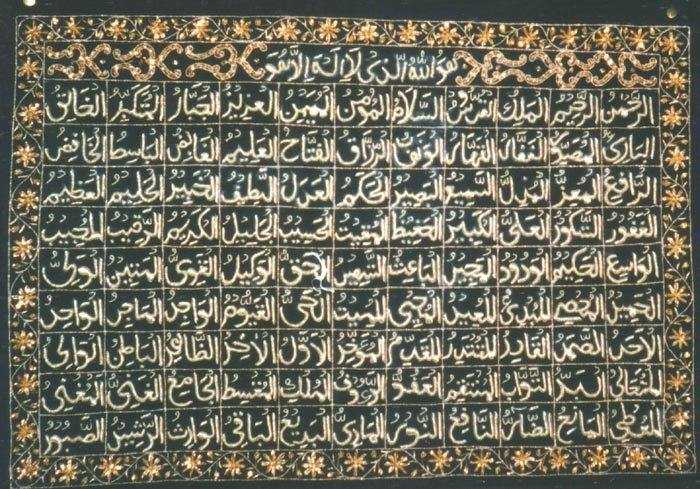 هو الله الذي لا اله الا هو
الرحمن الرحيم الملك القدوس السلام المؤمن المهيمن العزيز الجبار المتكبر الخالق
البارئ المصور الغفار القهار الوهاب الرزاق الفتاح العليم القابض الباسط الخافض
الرافع المعز المذل السميع البصير الحكم العدل اللطيف الخبير الحليم العظيم
الغفور الشكور العلي الكبير الحفيظ المقيت الحسيب الجليل الكريم الرقيب المجيب
الواسع الحكيم الودود المجيد الباعث الشهيد الحق الوكيل القوي المتين الولي
الحميد المحصي المبدئ المعيد المحيي المميت الحي القيوم الواجد الماجد الواحد
الاحد الصمد القادر المقتدر المقدم المؤخر الاول الاخر الظاهر الباطن الوالي
المتعالي البر التواب المنتقم العفو الرؤف الملك المقسط الجامع الغني المغني
المعطي المانع الضار النافع النور الهادي البديع الباقي الوارث الرشيد الصبور